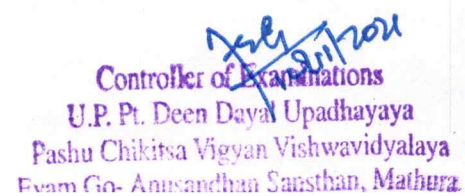 Controller of Examinations
U.P. Pt. Deen Dayal Upadhayaya
Pashu Chikitsa Vigyan Vishwavidyalaya
Evam Go- Anusandhan Sansthan, Mathura